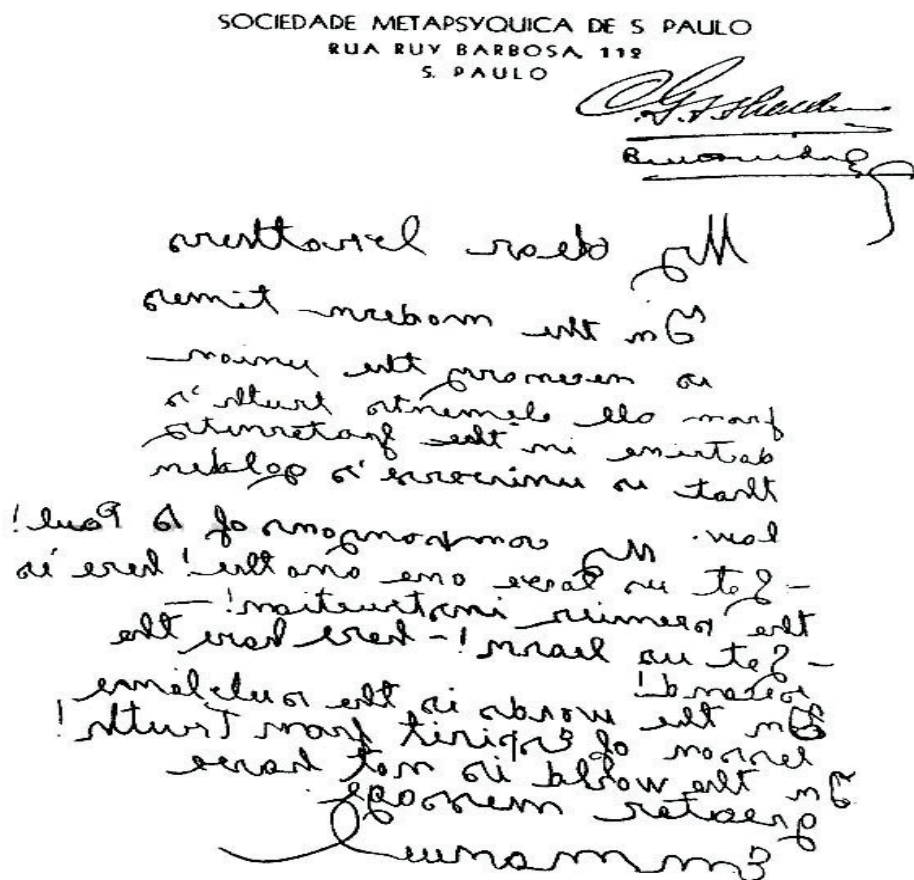 SOCIEDADE METAPSYQUICA DE S PAULO
RUA RUY BARBOSA 112
S. PAULO
My dear brothers
In the modern times
is necessary the union —
from all elements truth's
doctrine in the fraternity
that is universe's golden
law. My companions of S Paul!
- Let us love one the! here is
the genuin instruction! —
- Let us learn! - here have the
second!
In the words is the sublime
lesson of Spirit from Truth!
In the world is not have
greater message
Emmanuel